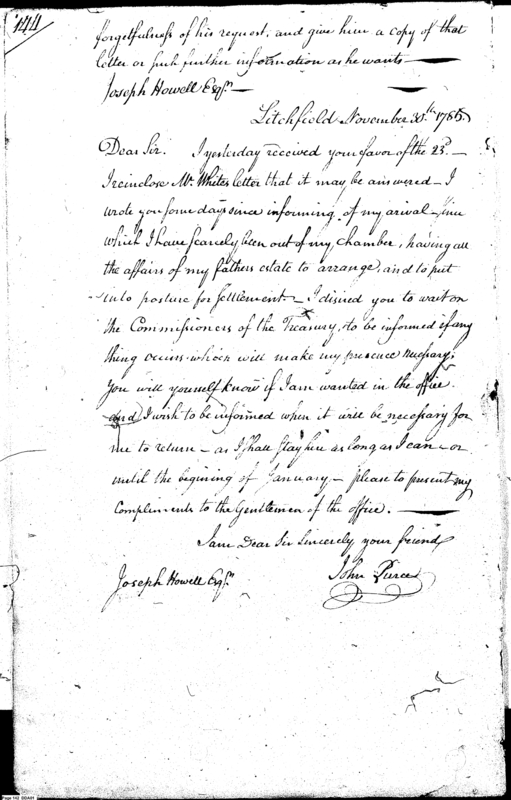 144
forgetfulness of his request, and give him a copy of that
letter or such further information as he wants —
Joseph Howell Esqr. —
Litchfield November 30.th 1786.
Dear Sir. I yesterday received your favor of the 23d. —
I reinclose Mr. Whites letter that it may be answered — I
wrote you some days since informing of my arival — since
which I have scarcely been out of my chamber, having all
the affairs of my fathers estate to arrange, and to put
into posture for settlement — I disired you to wait on
the Commissioners of the Treasury, to be informed if any
thing occurs which will make my presence necessary;
You will yourself know if I am wanted in the office
and I wish to be informed when it will be necessary for
me to return — as I shall stay here as long as I can — or
until the begining of January — please to present my
compliments to the Gentlemen of the office. —
I am Dear Sir sincerely your friend
John Pierce
Joseph Howell Esqr.